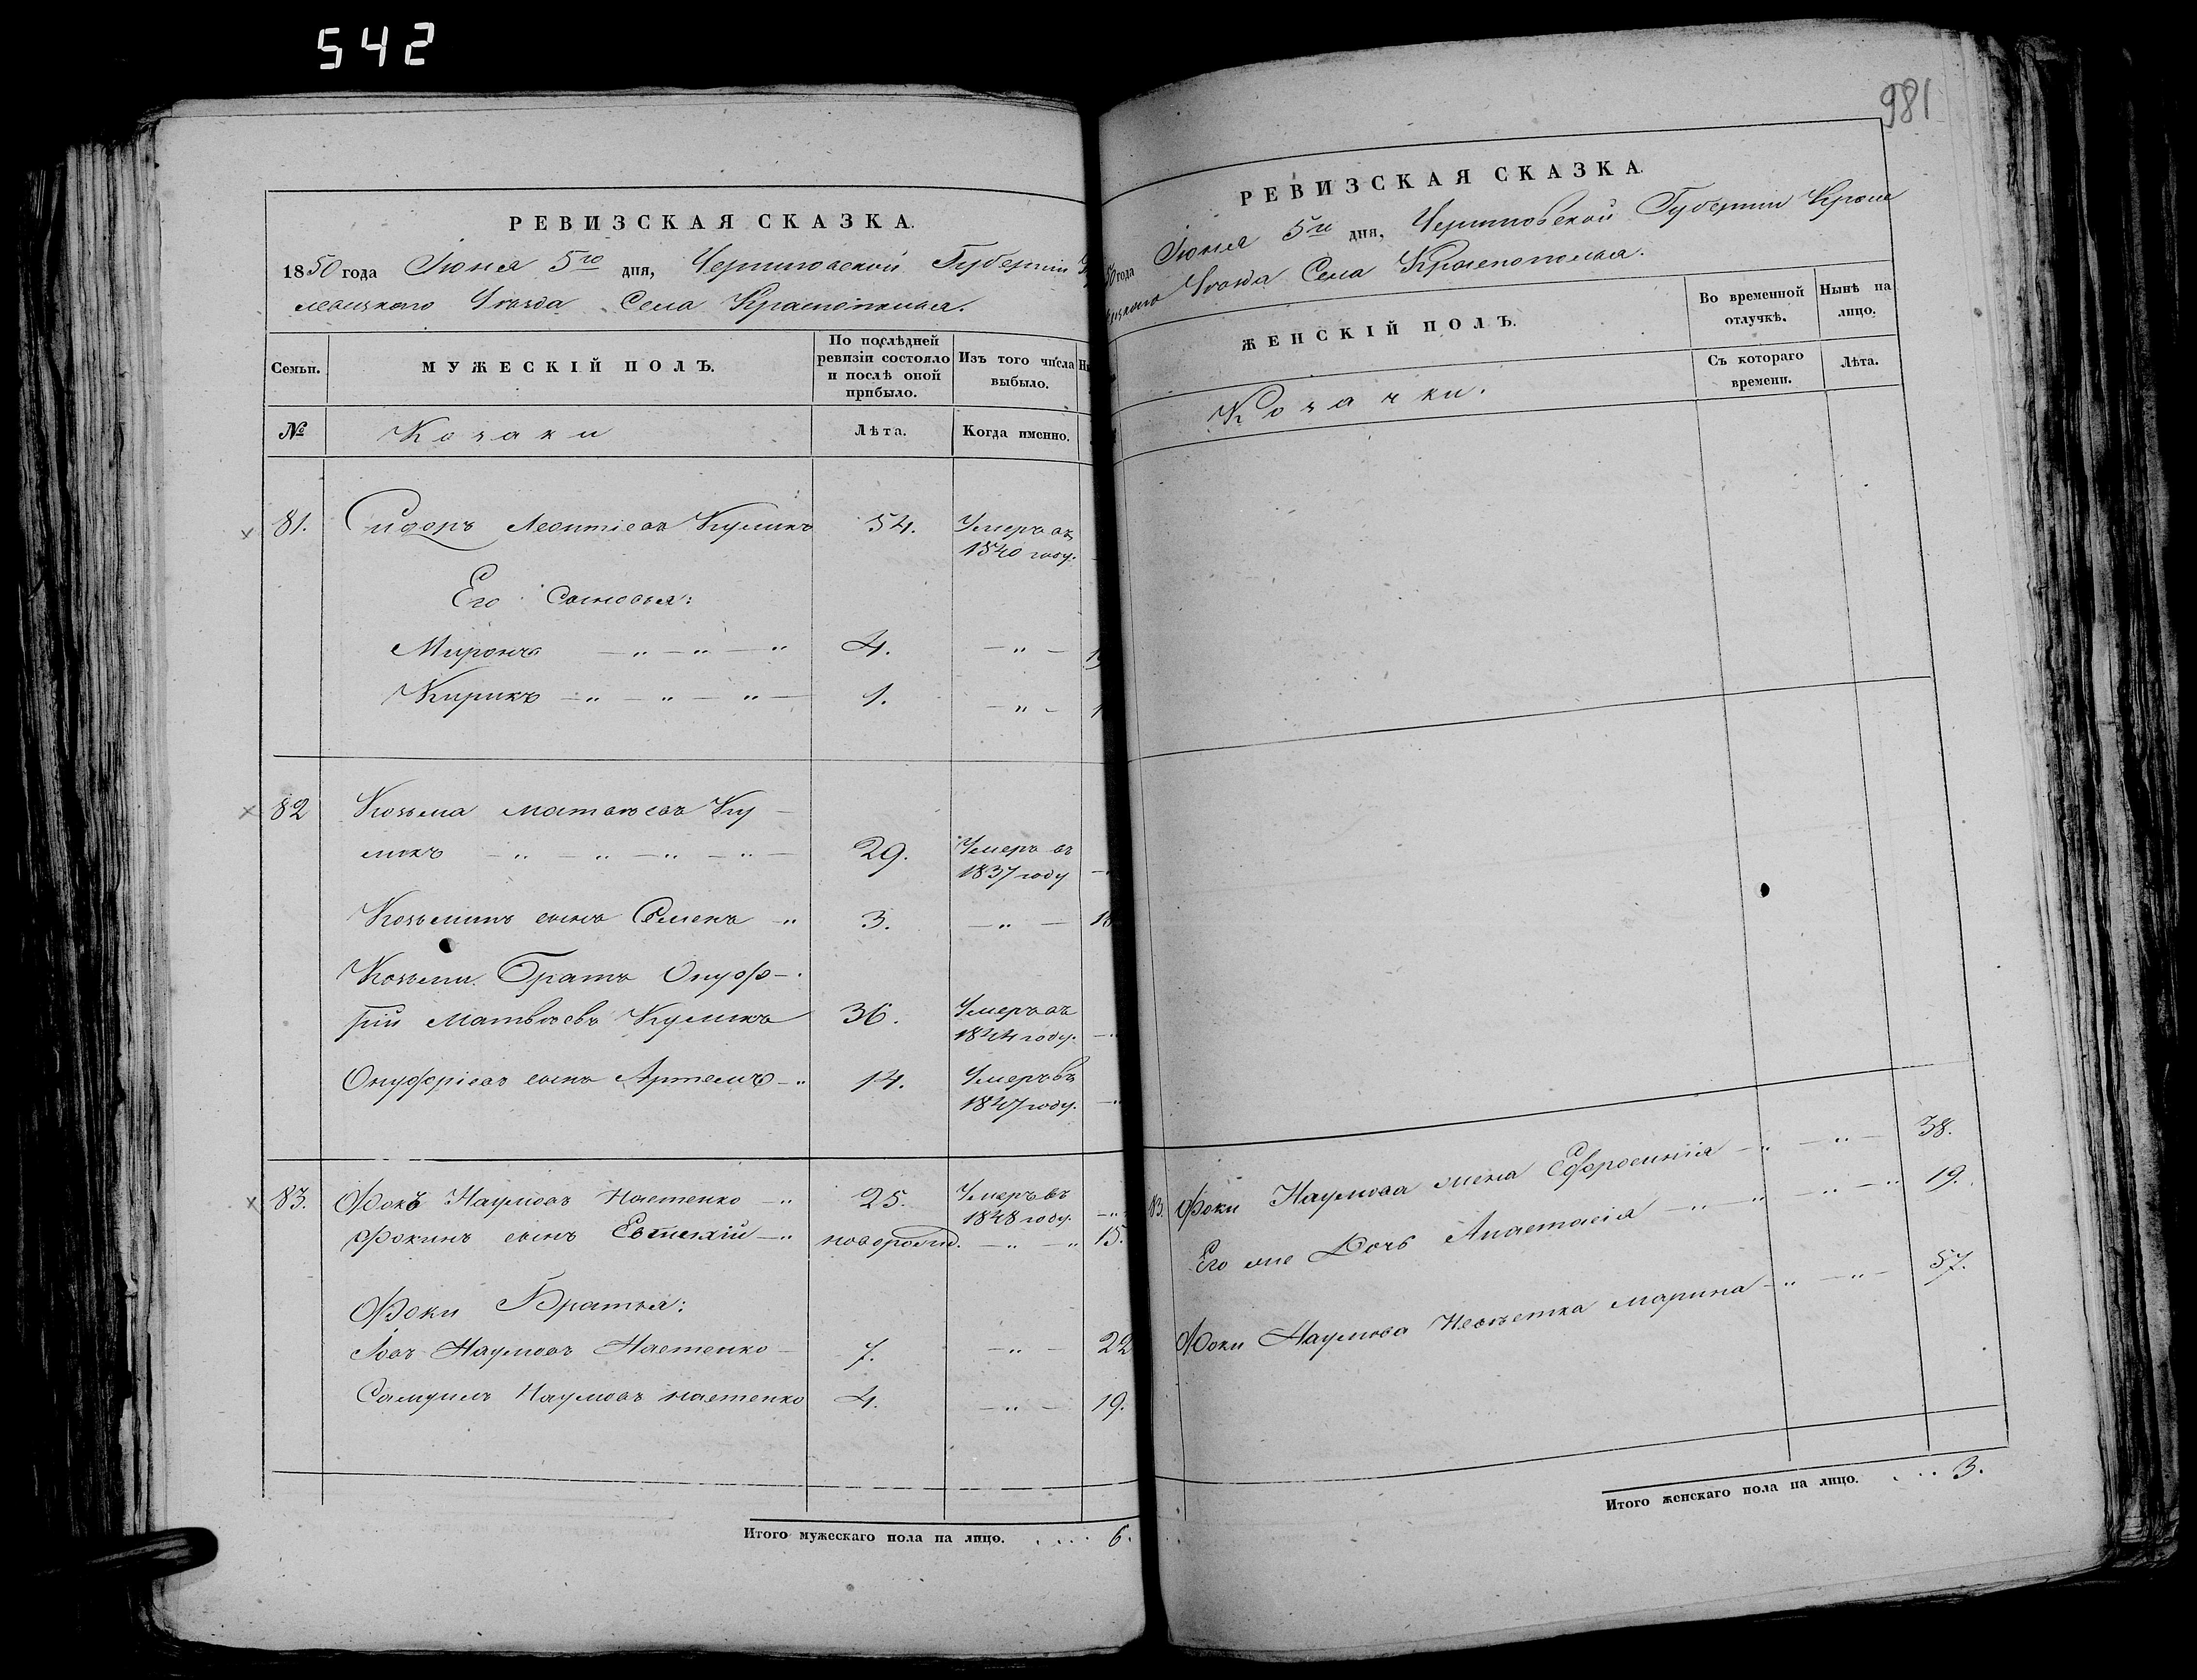 542
РЕВИЗСКАЯ СКАЗКА.
1850 года Іюня 5го дня, Черниговской Губерніи
левецкаго Уѣзда Села Краснополья.
Семьи.
МУЖЕСКІЙ ПОЛЪ.
По послѣдней
ревизіи состояло
и послѣ оной
прибыло.
Изъ того числа
выбыло.
№
Козаки
Лѣта.
Когда именно.
81. Сидоръ Леонтіевъ Куликъ 54. Умеръ въ
1840 году.
Его Сыновья:
Миронъ — „ — „ — „ 4. — „ —
Кирикъ — „ — „ — „ — 1. — „ —
82 Козьма Матвѣевъ Ку —
ликъ — „ — „ — „ — „ — 29. Умеръ въ
1837 году
Козьминъ сынъ Семенъ „ 3. — „ —
Козьмы Братъ Онуф—
рій Матвѣевъ Куликъ 36. Умеръ въ
1844 году.
Онуфріевъ сынъ Артемъ — „ 14. Умеръ въ
1847 году.
83. Фока Наумовъ Настенко — „ 25. Умеръ въ
1848 году.
Фокинъ сынъ Евтихій — „ новорожд. — „ — „ 15.
Фоки Братья:
Іовъ Наумовъ Настенко — 7. — „ — 22
Самуилъ Наумовъ Настенко 4. — „ — 19.
Итого мужескаго пола на лицо. . . . . 6.
981
РЕВИЗСКАЯ СКАЗКА.
50 года Іюня 5го дня, Черниговской Губерніи Кроле
вецкаго Уѣзда Села Краснополья.
ЖЕНСКІЙ ПОЛЪ.
Во временной
отлучкѣ.
Нынѣ на
лицо.
Съ котораго
времени.
Лѣта.
Козачки.
83. Фоки Наумова жена Ефросинія — „ — „ — 38.
Его же Дочь Анастасія — „ — „ — „ — „ 19.
Фоки Наумова Невѣстка Марина — „ — „ — 57.
Итого женскаго пола на лицо. . . . 3.